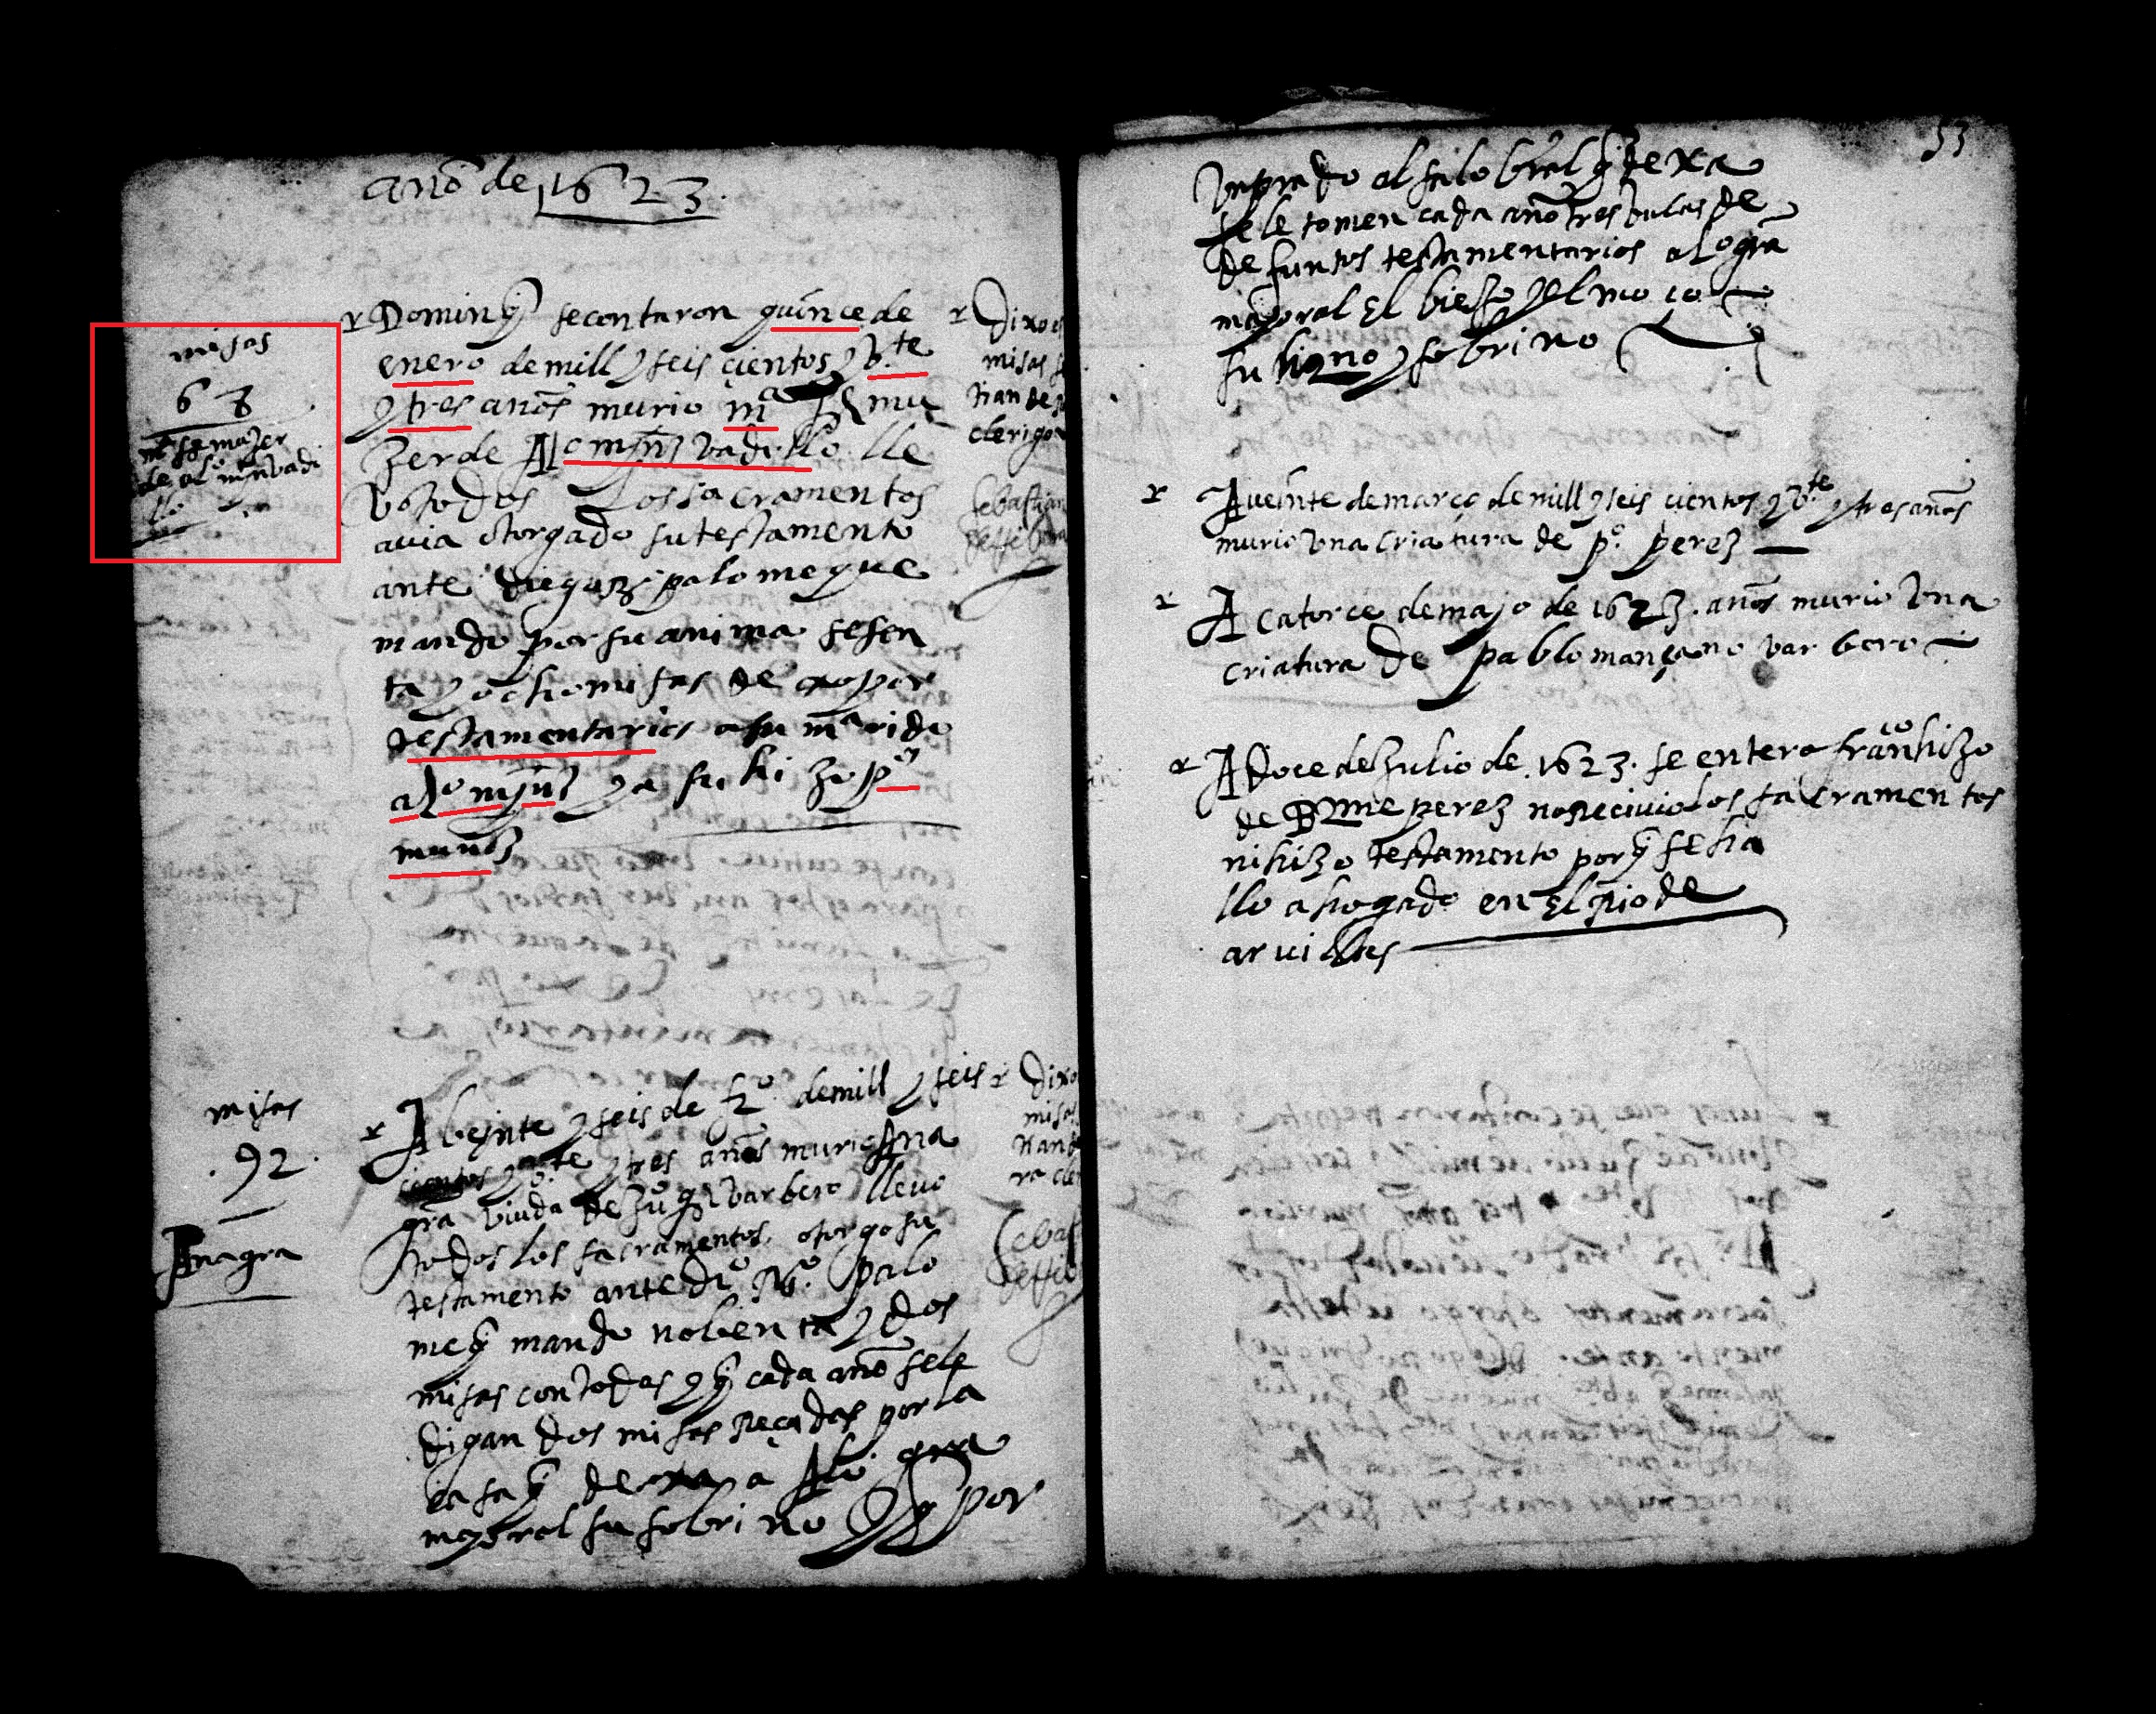 año de 1623
misas
68
mª fr mujer
de alº mȳn vadi
llo
Domingo se contaron quince de
enero de mill y seis cientos y vte
y tres años murio mª fr mu
zer de Alº mȳn vadillo lle
vo todos los sacramentos
avia otorgado su testamento
ante palomeque
mando por su anima sesen
ta y ocho misas dexo por
testamentarios a su mªrido
alº mȳn y a su hizo pº
muñoz
Dixo
misas
clerigo
Sebastian
misas
.92.
Ana gra
A beynte y seis de f2º de mill y seis
cientos y vte y tres años murio Ana
gra viuda de Juº varbero llevo
todos los sacramentos otorgo su
testamento ante diº palo
meq̃ mando nobenta y dos
misas con todas y q̃ cada año se le
digan dos misas Reçadas por la
casa q̃ dexa a Alº gra
mayoral su sobrino y por
Dixo
misas
Sebas
53
un prado al q̃ dexa
se le tomen cada año tres bulas de
defuntos testamentarios alº gra
mayoral El biejo y el moço
su sobrino
A veinte de março de mill y seis cientos y vte y tres años
murio una criatura de pº perez
A catorce de mayo de 1623. años murio una
criatura de pablo mançano varbero
A doce de Julio de .1623. se entero franco hizo
de Bme perez no Recivio los sacramentos
ni hizo testamento por q̃ se ha
llo ahogado en El Rio de